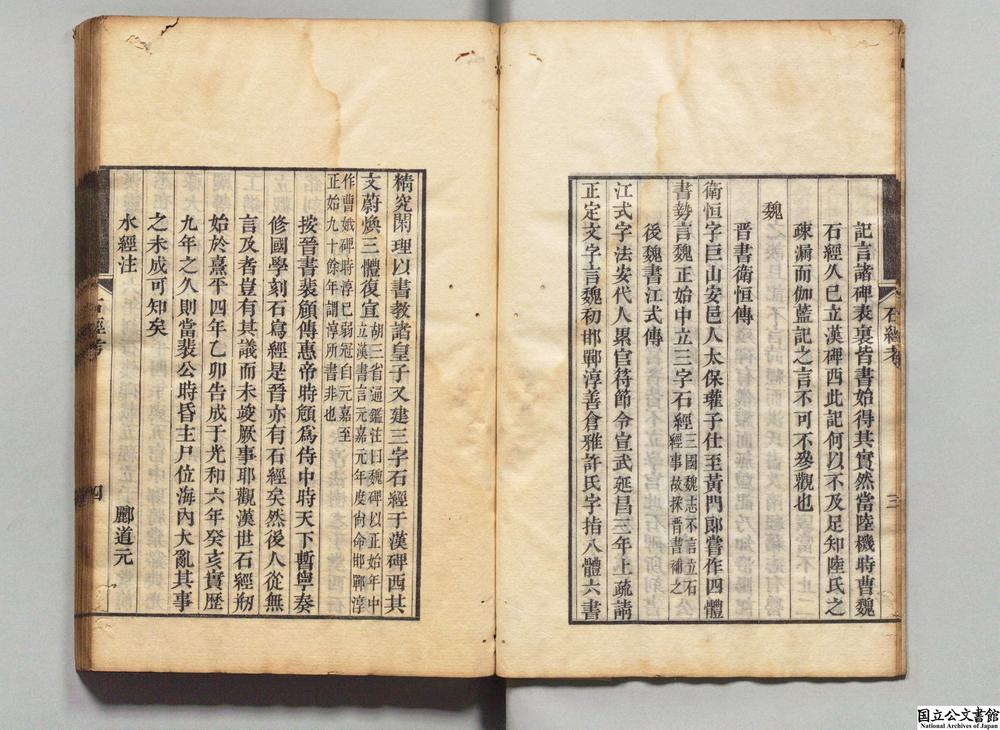 記言諸碑表裏皆書始得其實然當陸機時曹魏
石經久已立漢碑西此記何以不及足知陸氏之
疎漏而伽藍記之言不可不參觀也
魏
晉書衛恒傳
衛恒字巨山安邑人太保瓘子仕至黃門郞嘗作四體
書勢言魏正始中立三字石經三國魏志不言立石
經事故採晉書補之
後魏書江式傳
江式字法安代人累官符節令宣武延昌三年上疏請
正定文字言魏初邯鄲淳善倉雅許氏字指八體六書
石經考
三
精究閑理以書教諸皇子又建三字石經于漢碑西其
文蔚煥三體復宣胡三省通鑑注曰魏碑以正始年中
立漢書言元嘉元年度尙命邯鄲淳
作曹娥碑時淳已弱冠自元嘉至
正始九十餘年謂淳所書非也
按晉書裴頠傳惠帝時頠爲侍中時天下暫寧奏
修國學刻石寫經是晉亦有石經矣然後人從無
言及者豈有其議而未竣厥事耶觀漢世石經刱
始於熹平四年乙卯告成于光和六年癸亥實歷
九年之久則當裴公時昏主尸位海內大亂其事
之未成可知矣
水經注
酈道元
石經考
四
国立公文書館
National Archives of Japan